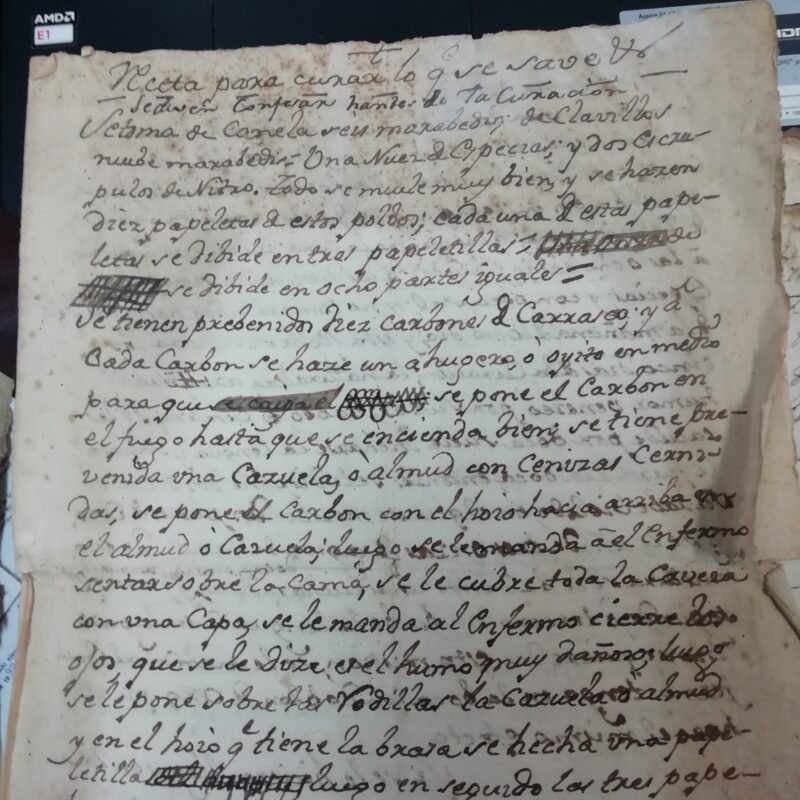 AMD
E1
Receta para curar lo q̃ se save &ro
Se deven Confesar hantes de la Curación
Setoma de Canela seis marabedis; de Clavillos
nuebe marabedis- Una Nuez d Especias; y dos escru-
pulos de Nitro. todo se muele muy bien, y se hazen
diez papeletas d estos polbos; cada una d estas pape-
letas se dibide en tres papeletillas = de
se dibide en ocho partes iguales =
Se tienen prebenidos diez carbones d Carrasco; y a
Cada Carbon se haze un ahugero, ò oyito en medio
para que se caiga el se pone el Carbon en
el fuego hasta que se encienda bien; se tiene pre-
venida vna Cazuela, ò almud con Cenizas Cerni-
das, se pone el Carbon con el hoio hacia arriba en
el almud ò Cazuela; luego se le manda a el Enfermo
sentar sobre la Cama, se le cubre toda la Caveza
con vna Capa, se le manda al Enfermo cierre los
ojos que se le dize es el humo muy dañoso; luego
se le pone sobre las Rodillas la Cazuela ò almud
y en el hoio q̃ tiene la brasa se hecha vna pape-
letilla luego en seguido las tres pape-